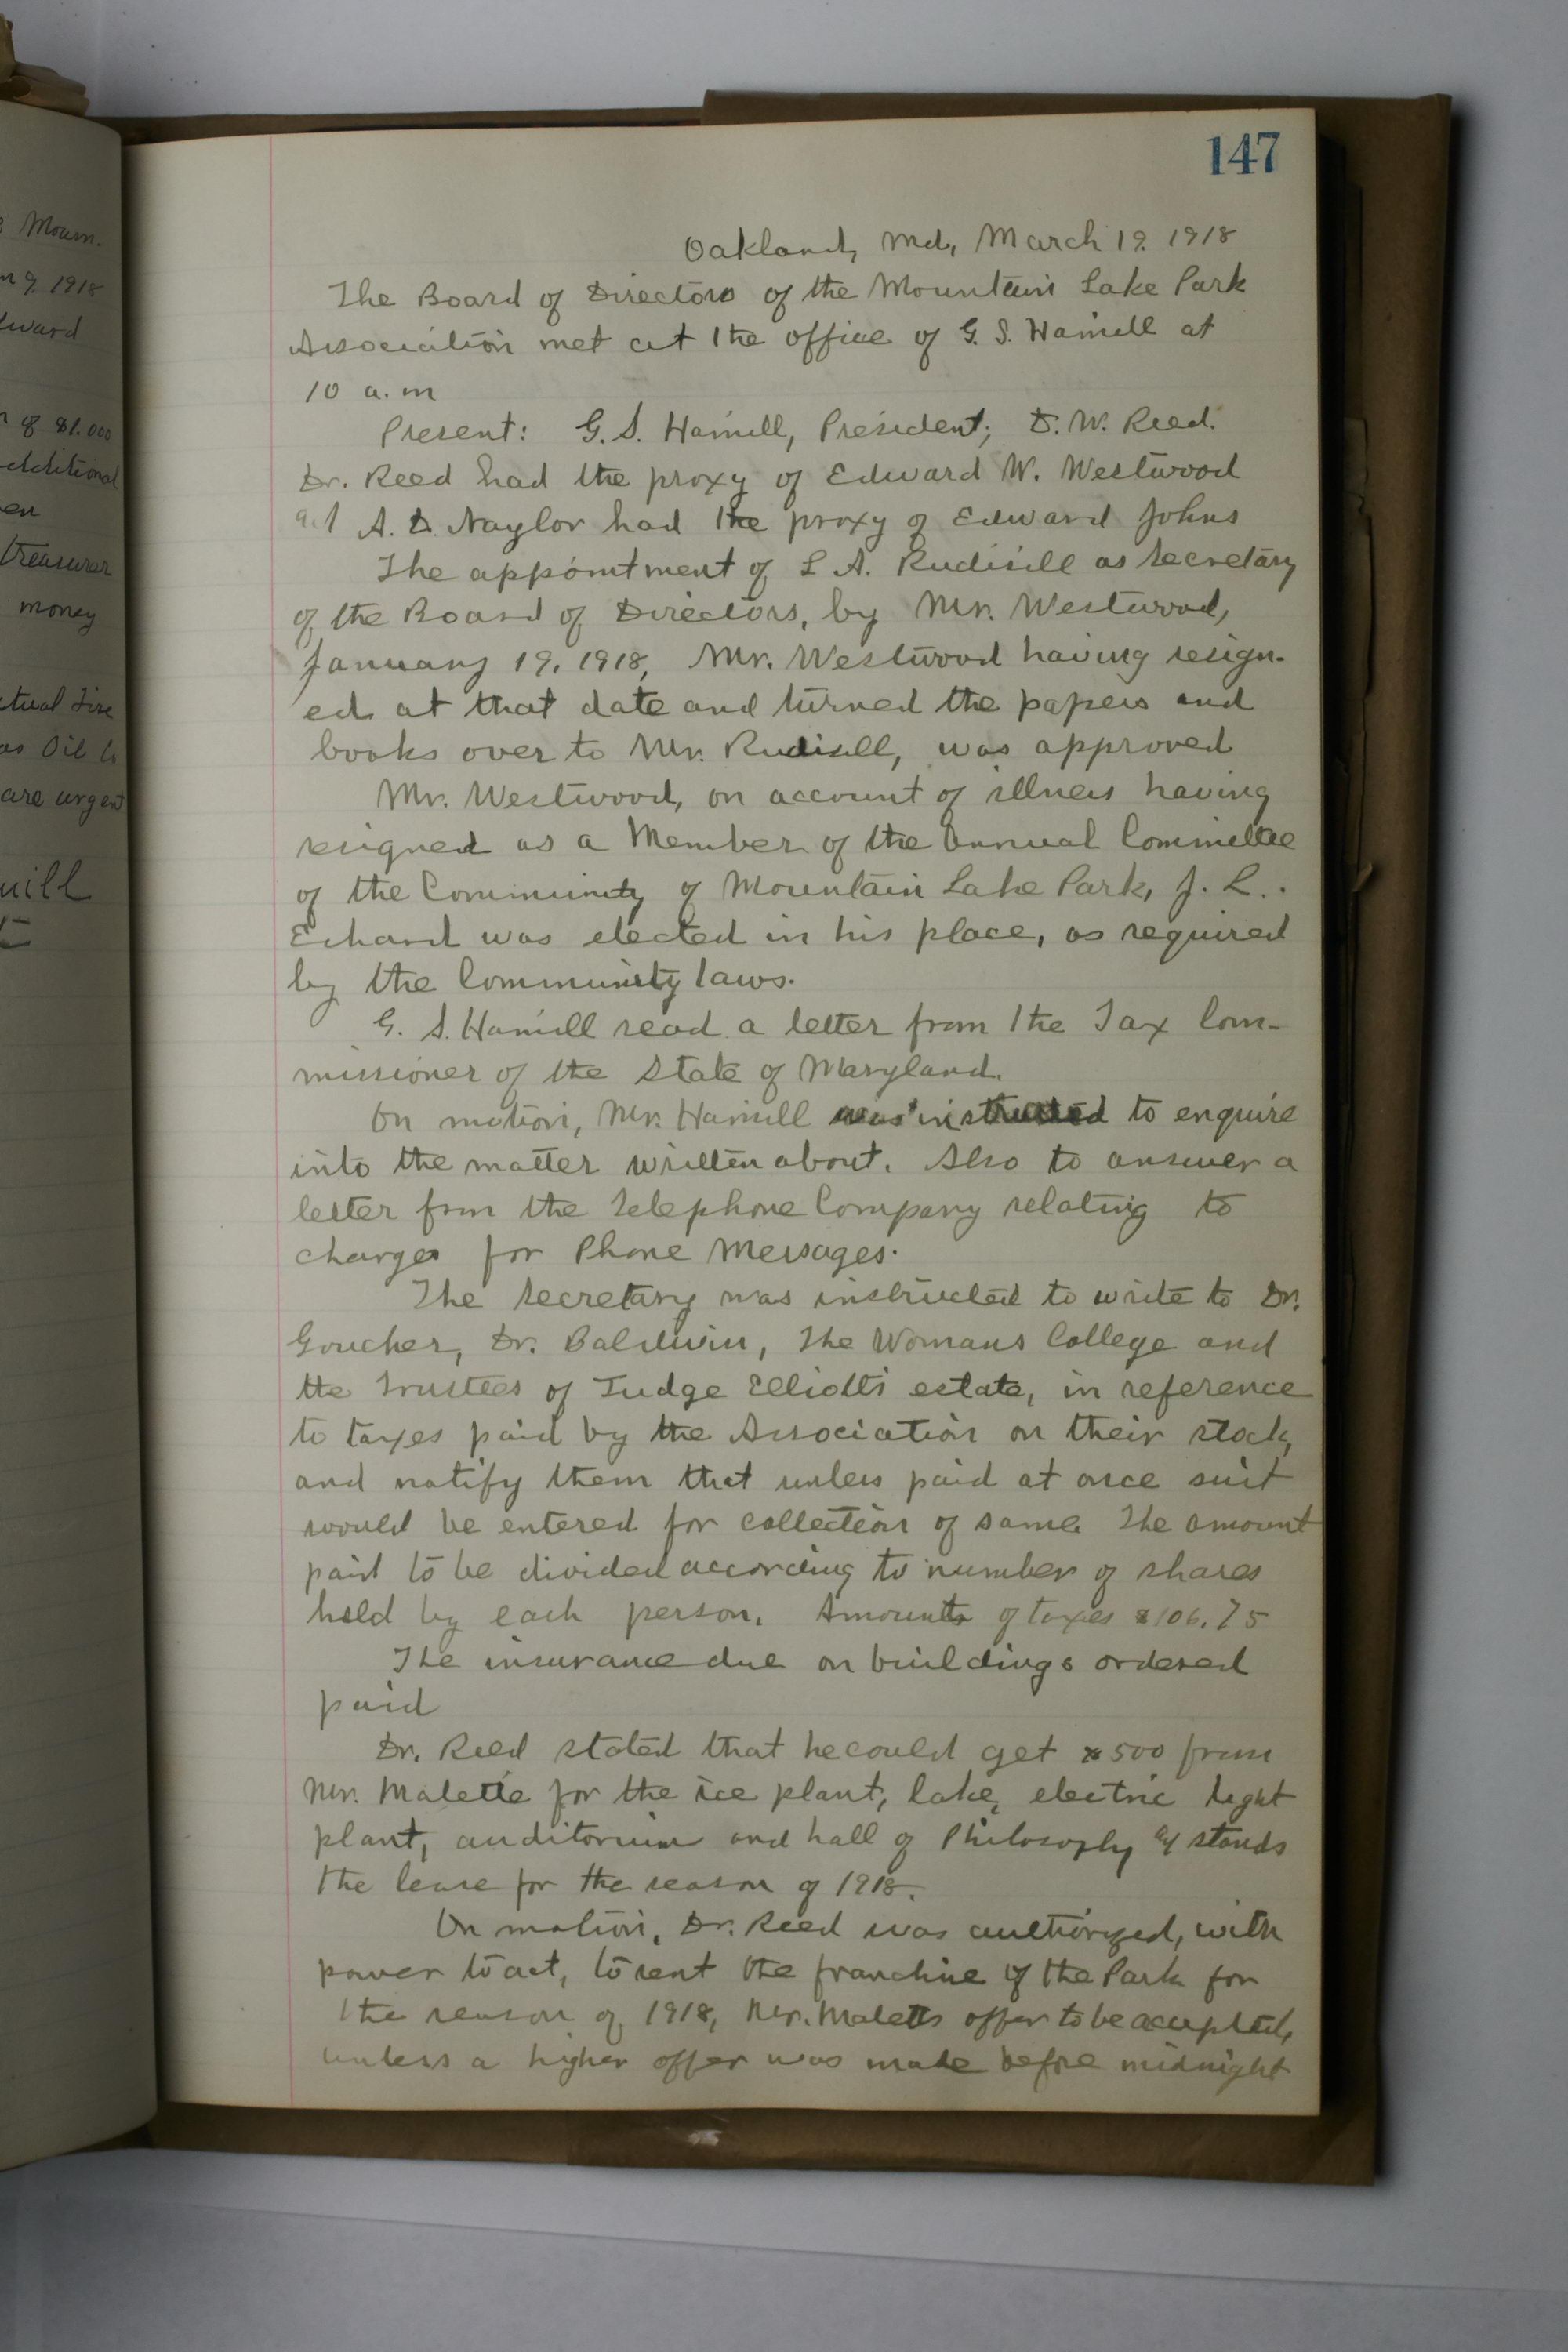 147
Oakland, Md, March 19. 1918
The Board of Directors of the Mountain Lake Park
Association met at the office of G. S. Hamill at
10 a.m
Present: G. S. Hamill, President; D. W. Reed.
Dr. Reed had the proxy of Edward W. Westwood
and A. D. Naylor had the proxy of Edward Johns
The appointment of L A. Rudisill as Secretary
of the Board of Directors, by Mr. Westwood,
January 19, 1918, Mr. Westwood having resign-
ed at that date and turned the papers and
books over to Mr. Rudisill, was approved
Mr. Westwood, on account of illness having
resigned as a Member of the Annual Committee
of the Community of Mountain Lake Park, J. L.
Echard was elected in his place, as required
by the Community laws.
G. S. Hamill read a letter from the Tax Com-
missioner of the State of Maryland.
On motion, Mr. Hamill was instructed to enquire
into the matter written about. Also to answer a
letter from the Telephone Company relating to
charges for Phone Messages.
The Secretary was instructed to write to Dr.
Goucher, Dr. Baldwin, The Womans College and
the Trustees of Judge Elliotts estate, in reference
to taxes paid by the Association on their stock,
and notify them that unless paid at once suit
would be entered for collection of same. The amount
paid to be divided according to number of shares
held by each person. Amounts of taxes $106.75
The insurance due on buildings ordered
paid
Dr. Reed stated that he could get $500 from
Mr. Malette for the ice plant, lake, electric light
plant, auditorium and hall of Philosophy stands
the lease for the season of 1918.
On motion, Dr. Reed was authorized, with
power to act, to rent the franchise of the Park for
the season of 1918, Mr. Maletts offer to be accepted,
unless a higher offer was made before midnight
Mourn.
9, 1918
of $1.000
dditional
en
treasurer
money
tual Fire
Oil
are urgent
mill